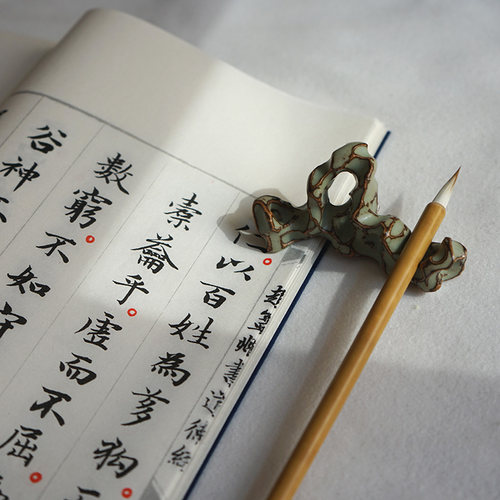 趙孟頫書道德經
以百姓為芻狗
橐籥乎虛而不屈
數窮不如守
谷神不